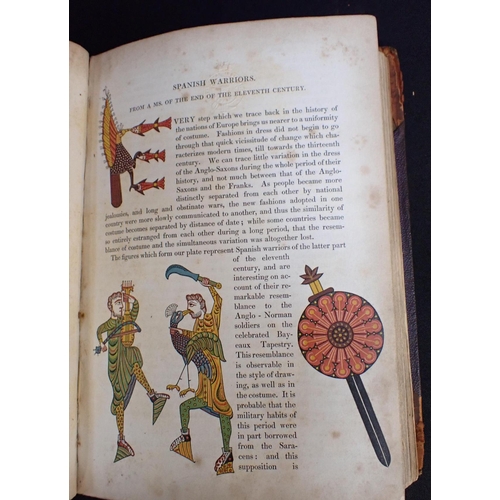 SPANISH WARRIORS.
FROM A MS. OF THE END OF THE ELEVENTH CENTURY.
EVERY step which we trace back in the history of
the nations of Europe brings us nearer to a uniformity
of costume. Fashions in dress did not begin to go
through that quick vicissitude of change which cha-
racterizes modern times, till towards the thirteenth
century. We can trace little variation in the dress
of the Anglo-Saxons during the whole period of their
history, and not much between that of the Anglo-
Saxons and the Franks. As people became more
distinctly separated from each other by national
jealousies, and long and obstinate wars, the new fashions adopted in one
country were more slowly communicated to another, and thus the similarity of
costume becomes separated by distance of date; while some countries became
so entirely estranged from each other during a long period, that the resem-
blance of costume and the simultaneous variation was altogether lost.
The figures which form our plate represent Spanish warriors of the latter part
of the eleventh
century, and are
interesting on ac-
count of their re-
markable resem-
blance to the
Anglo-Norman
soldiers on the
celebrated Bay-
eaux Tapestry.
This resemblance
is observable in
the style of draw-
ing, as well as in
the costume. It is
probable that the
military habits of
this period were
in part borrowed
from the Sara-
cens: and this
supposition is